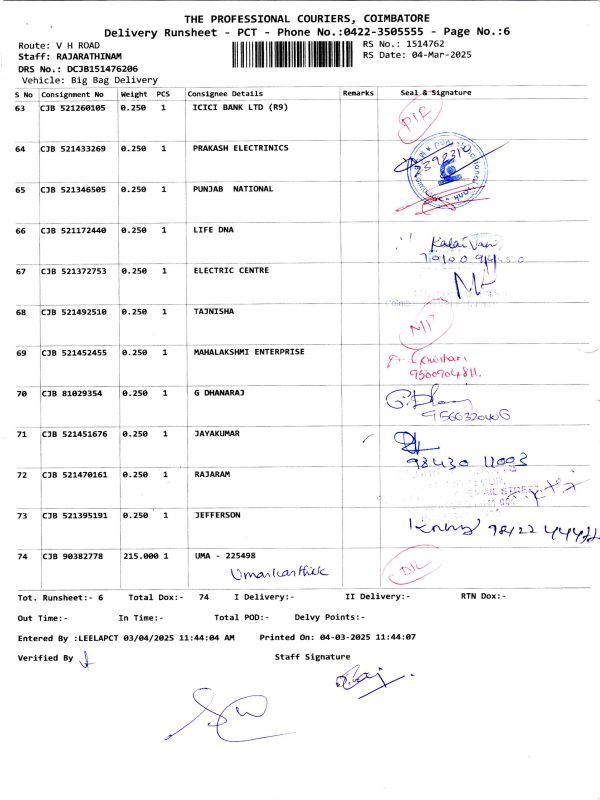 THE PROFESSIONAL COURIERS, COIMBATORE
Delivery Runsheet - PCT - Phone No.:0422-3505555 - Page No.:6
Route: V H ROAD RS No.: 1514762
Staff: RAJARATHINAM RS Date: 04-Mar-2025
DRS No.: DCJB151476206
Vehicle: Big Bag Delivery
S No Consignment No Weight PCS Consignee Details Remarks Seal & Signature
63 CJB 521260105 0.250 1 ICICI BANK LTD (R9)
64 CJB 521433269 0.250 1 PRAKASH ELECTRINICS
65 CJB 521346505 0.250 1 PUNJAB NATIONAL
66 CJB 521172440 0.250 1 LIFE DNA
67 CJB 521372753 0.250 1 ELECTRIC CENTRE
68 CJB 521492510 0.250 1 TAJNISHA
69 CJB 521452455 0.250 1 MAHALAKSHMI ENTERPRISE
9500904811.
70 CJB 81029354 0.250 1 G DHANARAJ
G. Dhan
9566320406
71 CJB 521451676 0.250 1 JAYAKUMAR
98430 11003
72 CJB 521470161 0.250 1 RAJARAM
73 CJB 521395191 0.250 1 JEFFERSON
74 CJB 90382778 215.000 1 UMA - 225498
Umakarthick D/L
Tot. Runsheet:- 6 Total Dox:- 74 I Delivery:- II Delivery:- RTN Dox:-
Out Time:- In Time:- Total POD:- Delvy Points:-
Entered By :LEELAPCT 03/04/2025 11:44:04 AM Printed On: 04-03-2025 11:44:07
Verified By Staff Signature